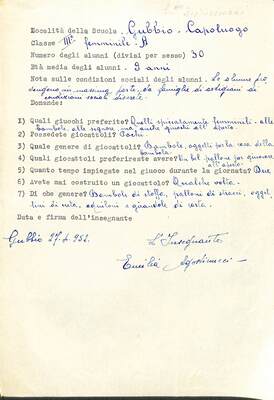 Località della Scuola, Gubbio - Capoluogo
Classe IIIª femminile - A
Numero degli alunni (divisi per sesso) 30
Età media degli alunni. 9 anni
Nota sulle condizioni sociali degli alunni. Le alunne pro
vengono in massima parte, da famiglie di artigiani in
condizioni sociali discrete.
Domande:
1) Quali giuochi preferite? Quelli spiccatamente femminili: alle
bambole, alle signore, ma anche giuochi all'aperto.
2) Possedete giocattoli? Pochi.
3) Quale genere di giocattoli? Bambole, oggetti per la casa della
bambola.
4) Quali giocattoli preferireste avere? Un bel pallone per giuocare
all'aperto.
5) Quanto tempo impiegate nel giuoco durante la giornata? Due
6) Avete mai costruito un giocattolo? Qualche volta.
7) Di che genere? Bambole di stoffa, palloni di stracci, oggetti
lini di creta, aquiloni e girandole di carta.
Data e firma dell'insegnante
Gubbio 27.2.952.
L'Insegnante
Emilia